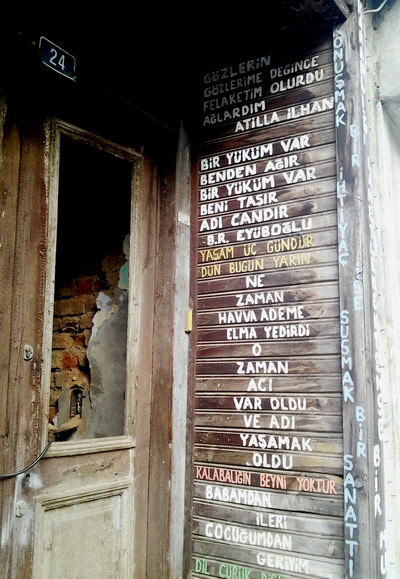 24
GÖZLERİN
GÖZLERİME DEĞİNCE
FELAKETİM OLURDU
AĞLARDIM
ATİLLA İLHAN
BİR YÜKÜM VAR
BENDEN AĞIR
BİR YÜKÜM VAR
BENİ TAŞIR
ADI CANDIR
B.R. EYÜBOĞLU
YAŞAM ÜÇ GÜNDÜR
DÜN BUGÜN YARIN
NE
ZAMAN
HAVVA ADEME
ELMA YEDİRDİ
O
ZAMAN
ACI
VAR OLDU
VE ADI
YAŞAMAK
OLDU
KALABALIĞIN BEYNİ YOKTUR
BABAMDAN
İLERİ
ÇOCUĞUMDAN
GERİYİM
DİL ÇÜRÜK
KONUŞMAK BİR İHTİYAÇ İSE SUSMAK BİR SANATTI